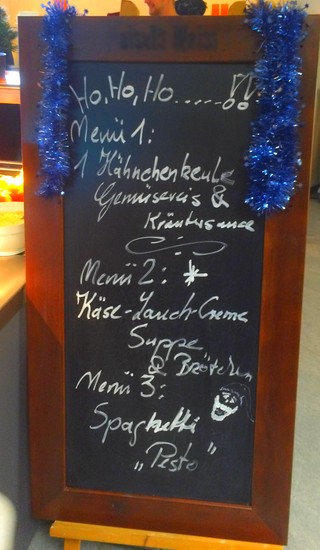 Ho, Ho, Ho.....
Menü 1:
1 Hähnchenkeule
Gemüsereis &
Kräutersauce
Menü 2:
Käse-Lauch-Creme
Suppe
& Brötchen
Menü 3:
Spaghetti
„Pesto"